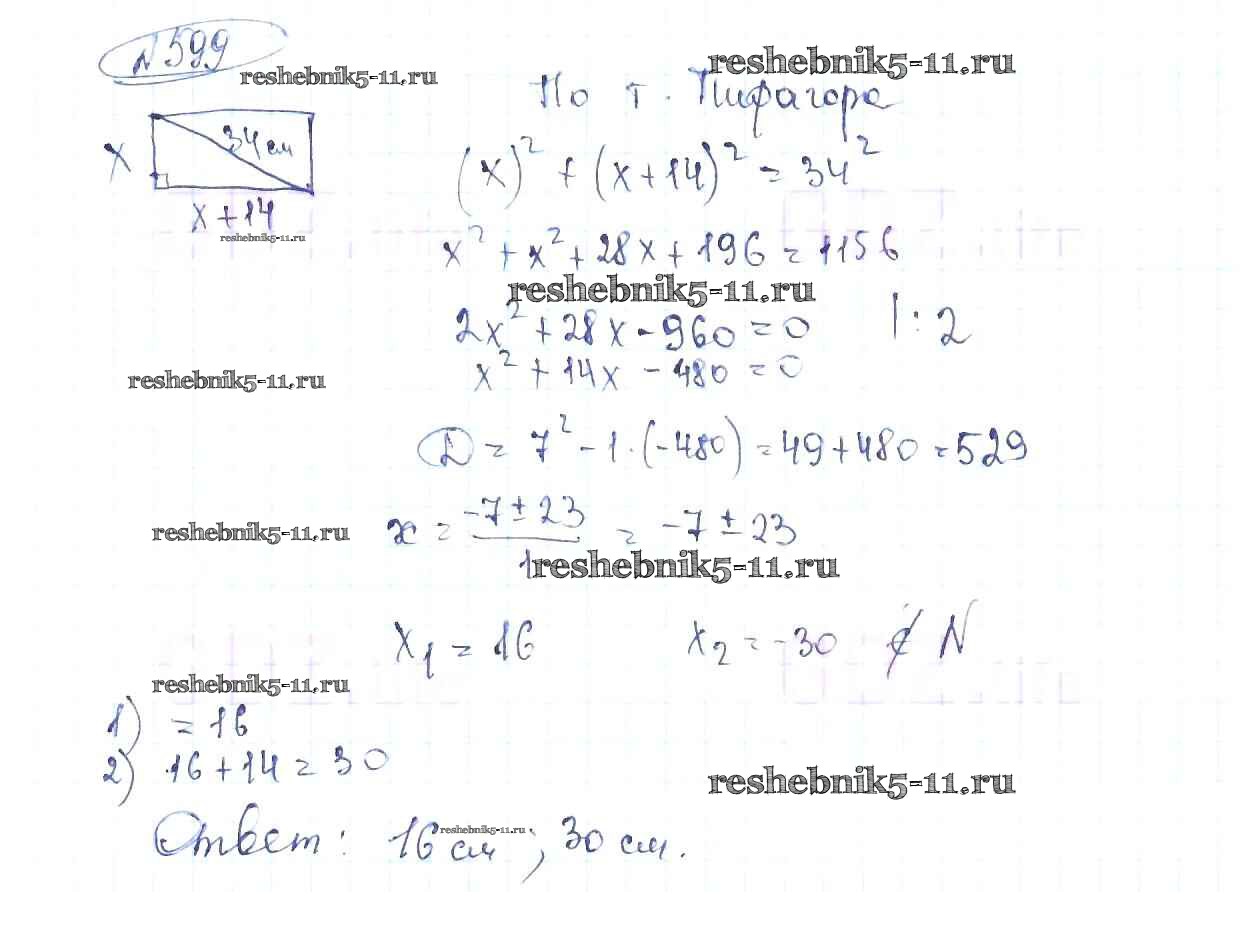 №599
reshebnik5-11.ru
reshebnik5-11.ru
По т. Пифагора
34 см
x
x+14
reshebnik5-11.ru
(x)² + (x+14)² = 34²
x² + x² + 28x + 196 = 1156
reshebnik5-11.ru
2x² + 28x - 960 = 0 |:2
x² + 14x - 480 = 0
reshebnik5-11.ru
D = 7² - 1·(-480) = 49 + 480 = 529
reshebnik5-11.ru
x = (-7 ± 23)/1 = -7 ± 23
reshebnik5-11.ru
x₁ = 16 x₂ = -30 ∉ N
reshebnik5-11.ru
1) = 16
2) 16 + 14 = 30
reshebnik5-11.ru
Ответ: 16 см, 30 см.
reshebnik5-11.ru